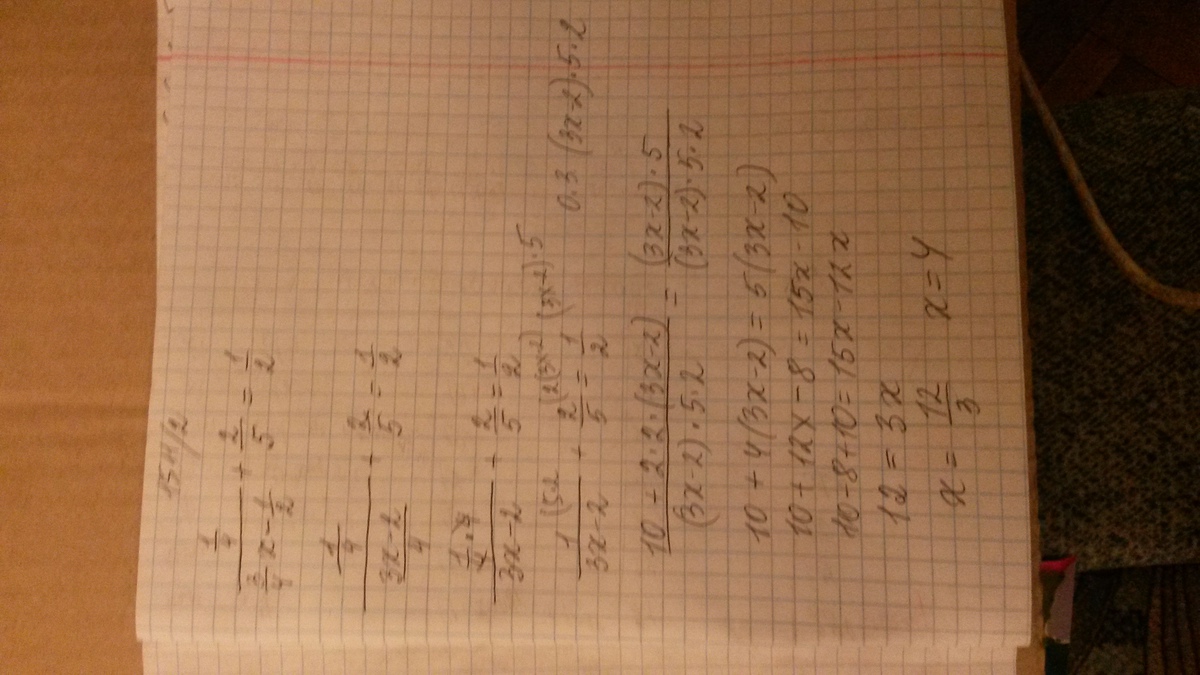 1511/2
(1/4)/(3/4 x - 1/2) + 2/5 = 1/2
(1/4)/((3x-2)/4) + 2/5 = 1/2
(1/4 · 4)/(3x-2) + 2/5 = 1/2
1/(3x-2) (5·2 + 2/5 (2(3x-2) = 1/2 (3x-2)·5 О.З (3x-2)·5·2
(10 + 2·2·(3x-2))/((3x-2)·5·2) = ((3x-2)·5)/((3x-2)·5·2)
10 + 4(3x-2) = 5(3x-2)
10 + 12x - 8 = 15x - 10
10 - 8 + 10 = 15x - 12x
12 = 3x
x = 12/3 x = 4